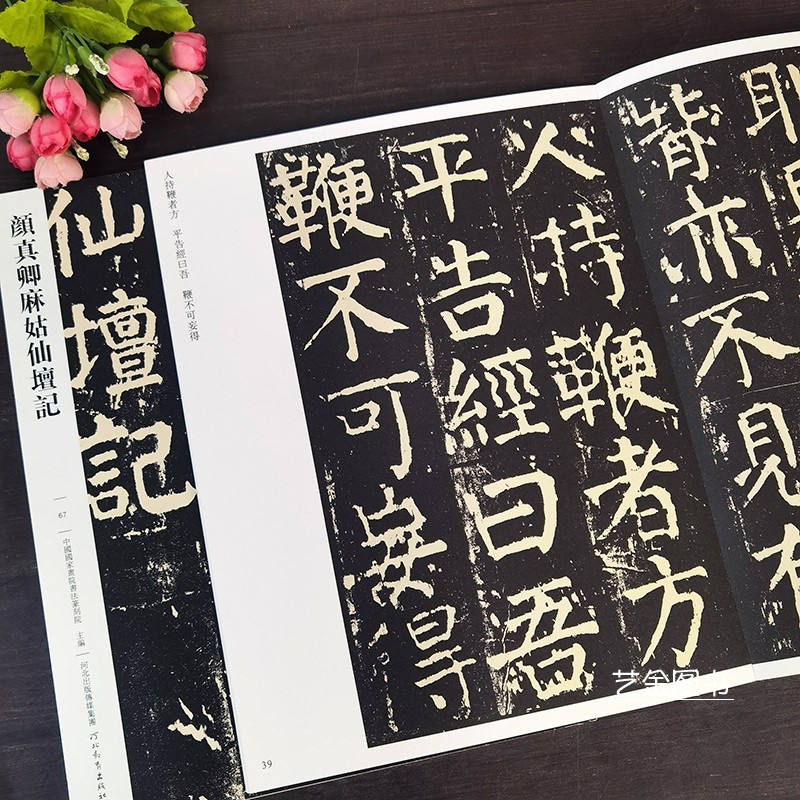 顔真卿麻姑仙壇記
67
中國國家畫院書法篆刻院 主編
河北出版傳媒集團
河北教育出版社
仙壇記
人持鞭者方 平告經曰吾 鞭不可妄得
耶
背亦不見有
人持鞭者方
平告經曰吾
鞭不可妄得
39
艺全图书